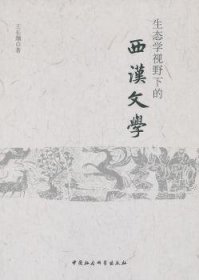 生态学视野下的
西漢文學
中国社会科学出版社